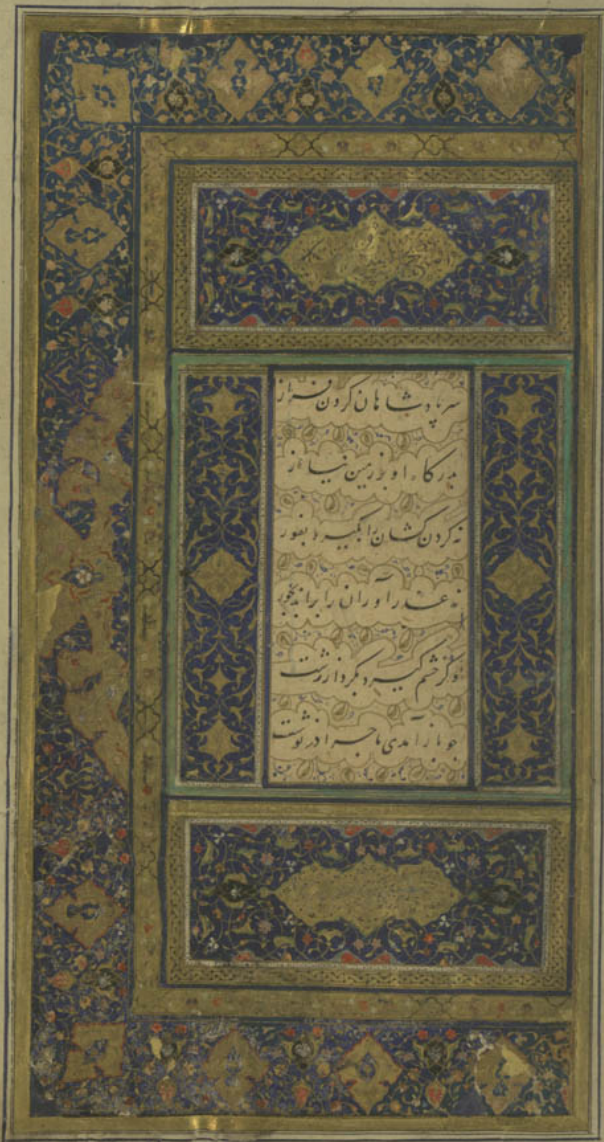 سر پادشاهان کردن فراز
بدرکاه او بر زمین نیاز
نه کردن کشان را بکیرد بفور
نه عذر آوران را براند بجور
وکر خشم کیرد بکردار زشت
چو باز آمدی ماجرا در نوشت